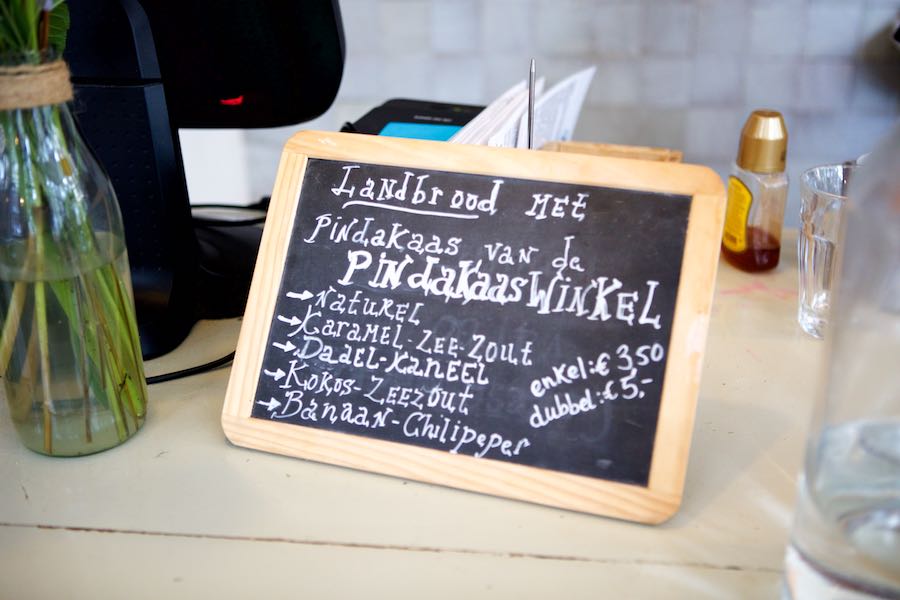 Landbrood Met
Pindakaas van de
PindakaasWinkel
→ Naturel
→ Karamel-Zee-Zout
→ Dadel-Kaneel
→ Kokos-Zeezout
→ Banaan-Chilipeper
enkel: € 3,50
dubbel: € 5,-